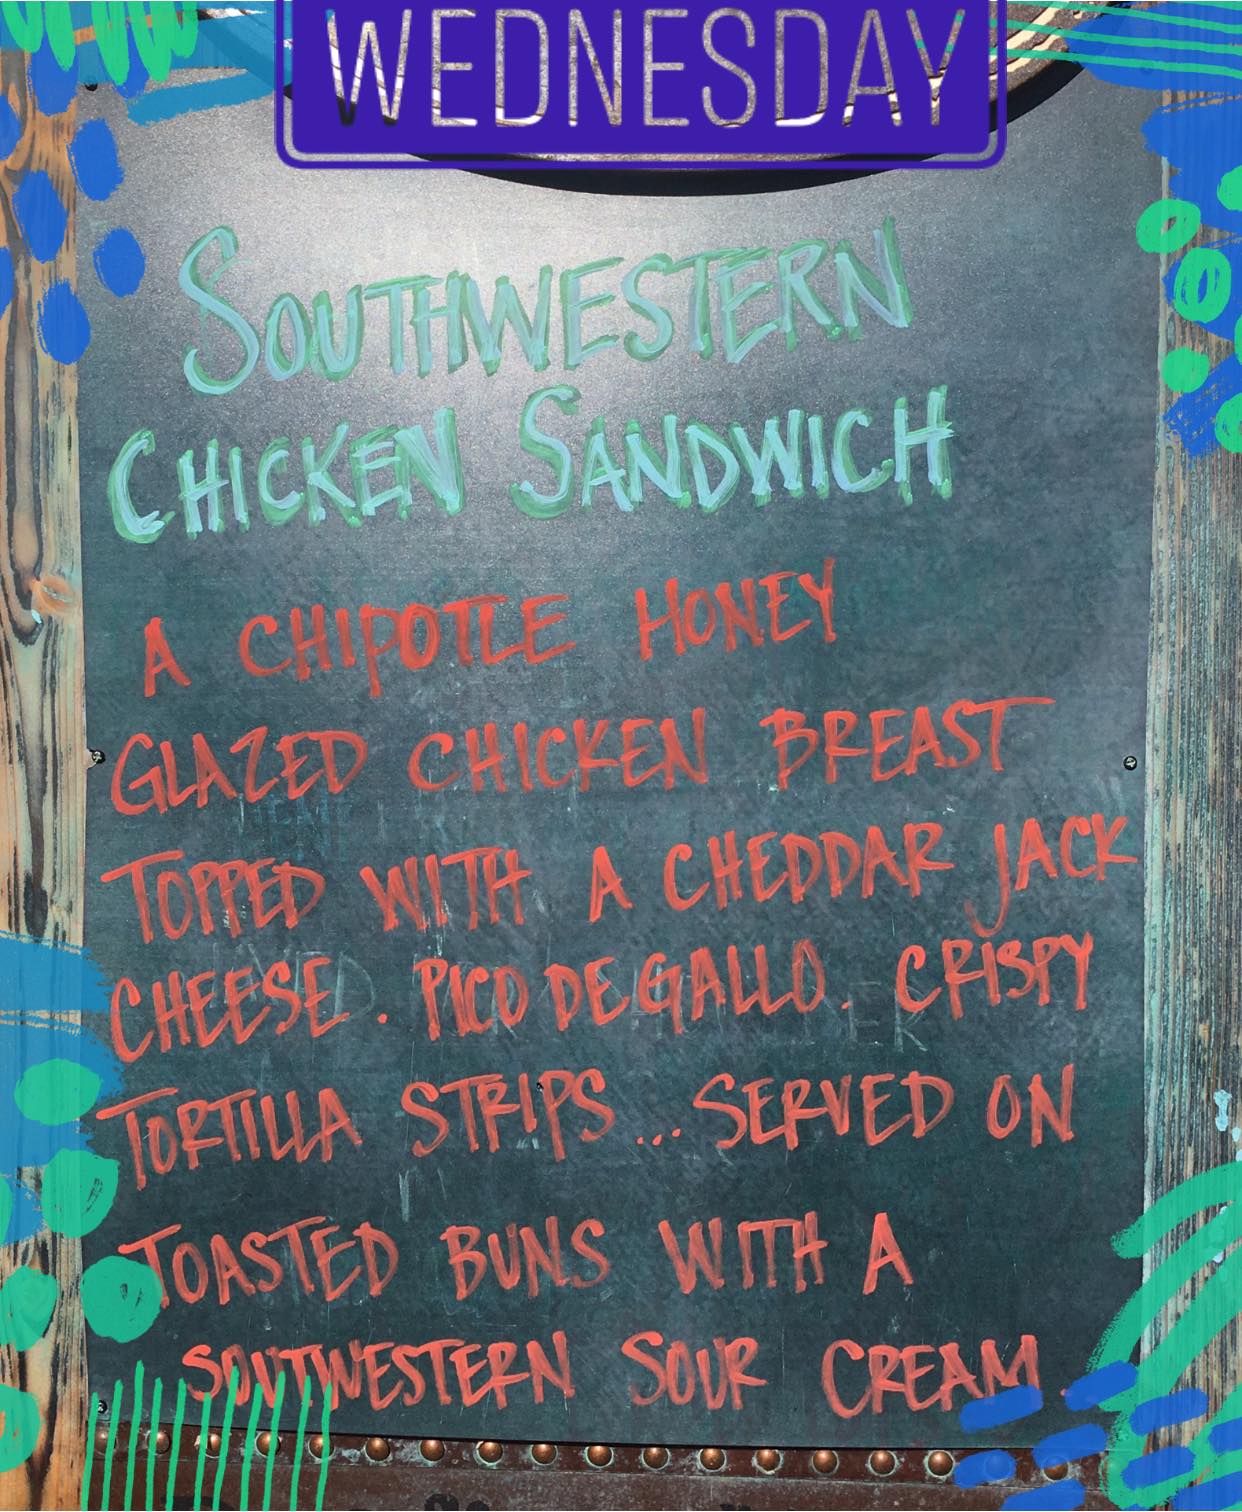 WEDNESDAY
SOUTHWESTERN
CHICKEN SANDWICH
A CHIPOTLE HONEY
GLAZED CHICKEN BREAST
TOPPED WITH A CHEDDAR JACK
CHEESE. PICO DE GALLO. CRISPY
TORTILLA STRIPS... SERVED ON
TOASTED BUNS WITH A
SOUTWESTERN SOUR CREAM.